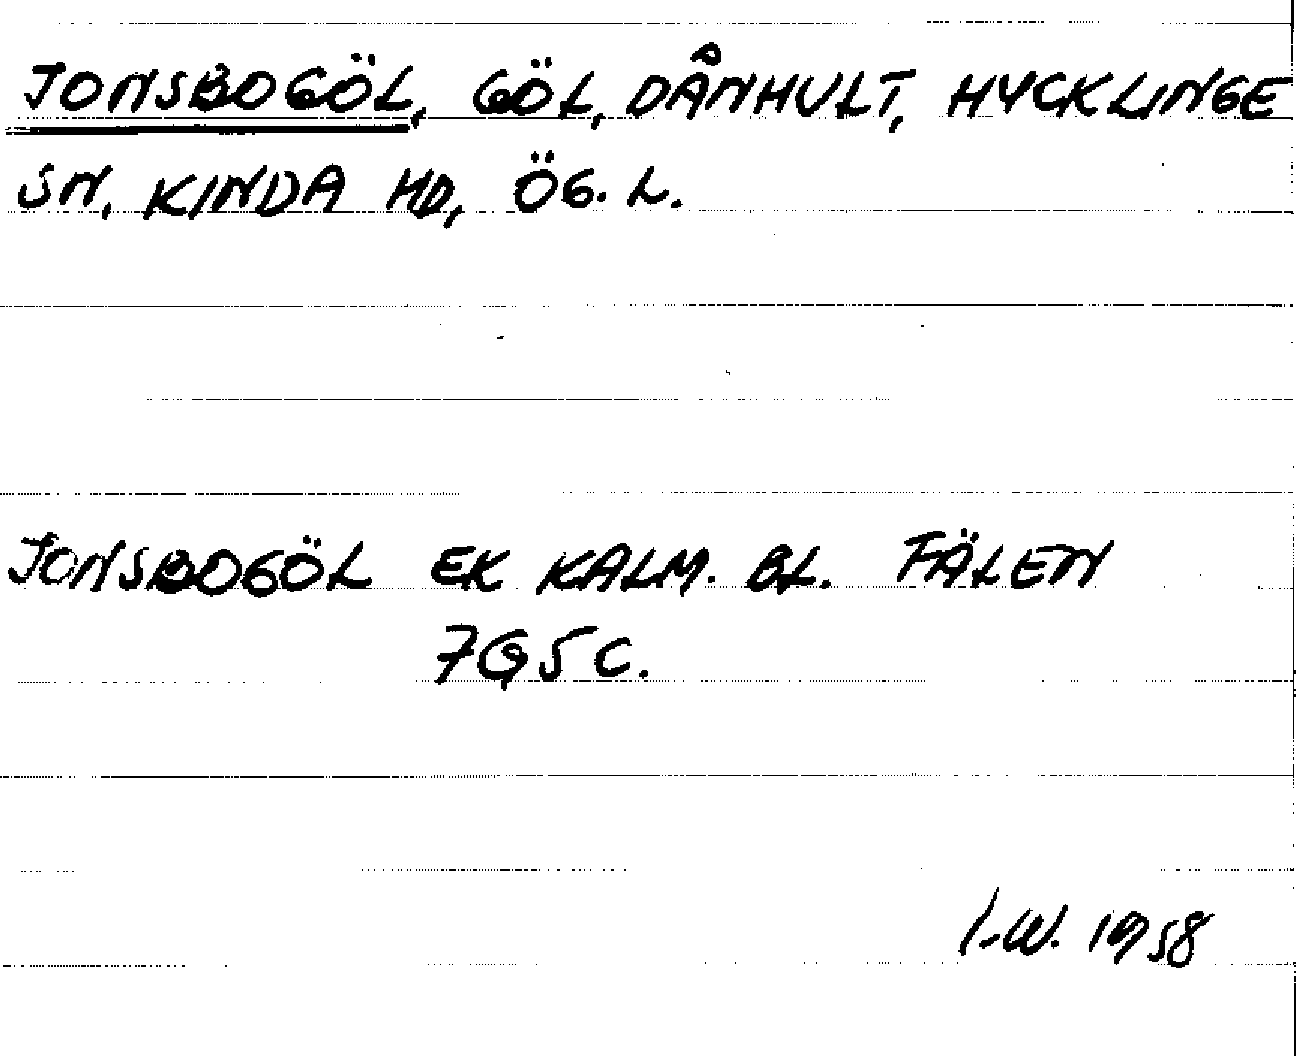 JONSBOGÖL, GÖL, DÅNHULT, HYCKLINGE
SN, KINDA HD, ÖG. L.
JONSBOGÖL EK KALM. BL. FÄLEN
7G5C.
I.W. 1958